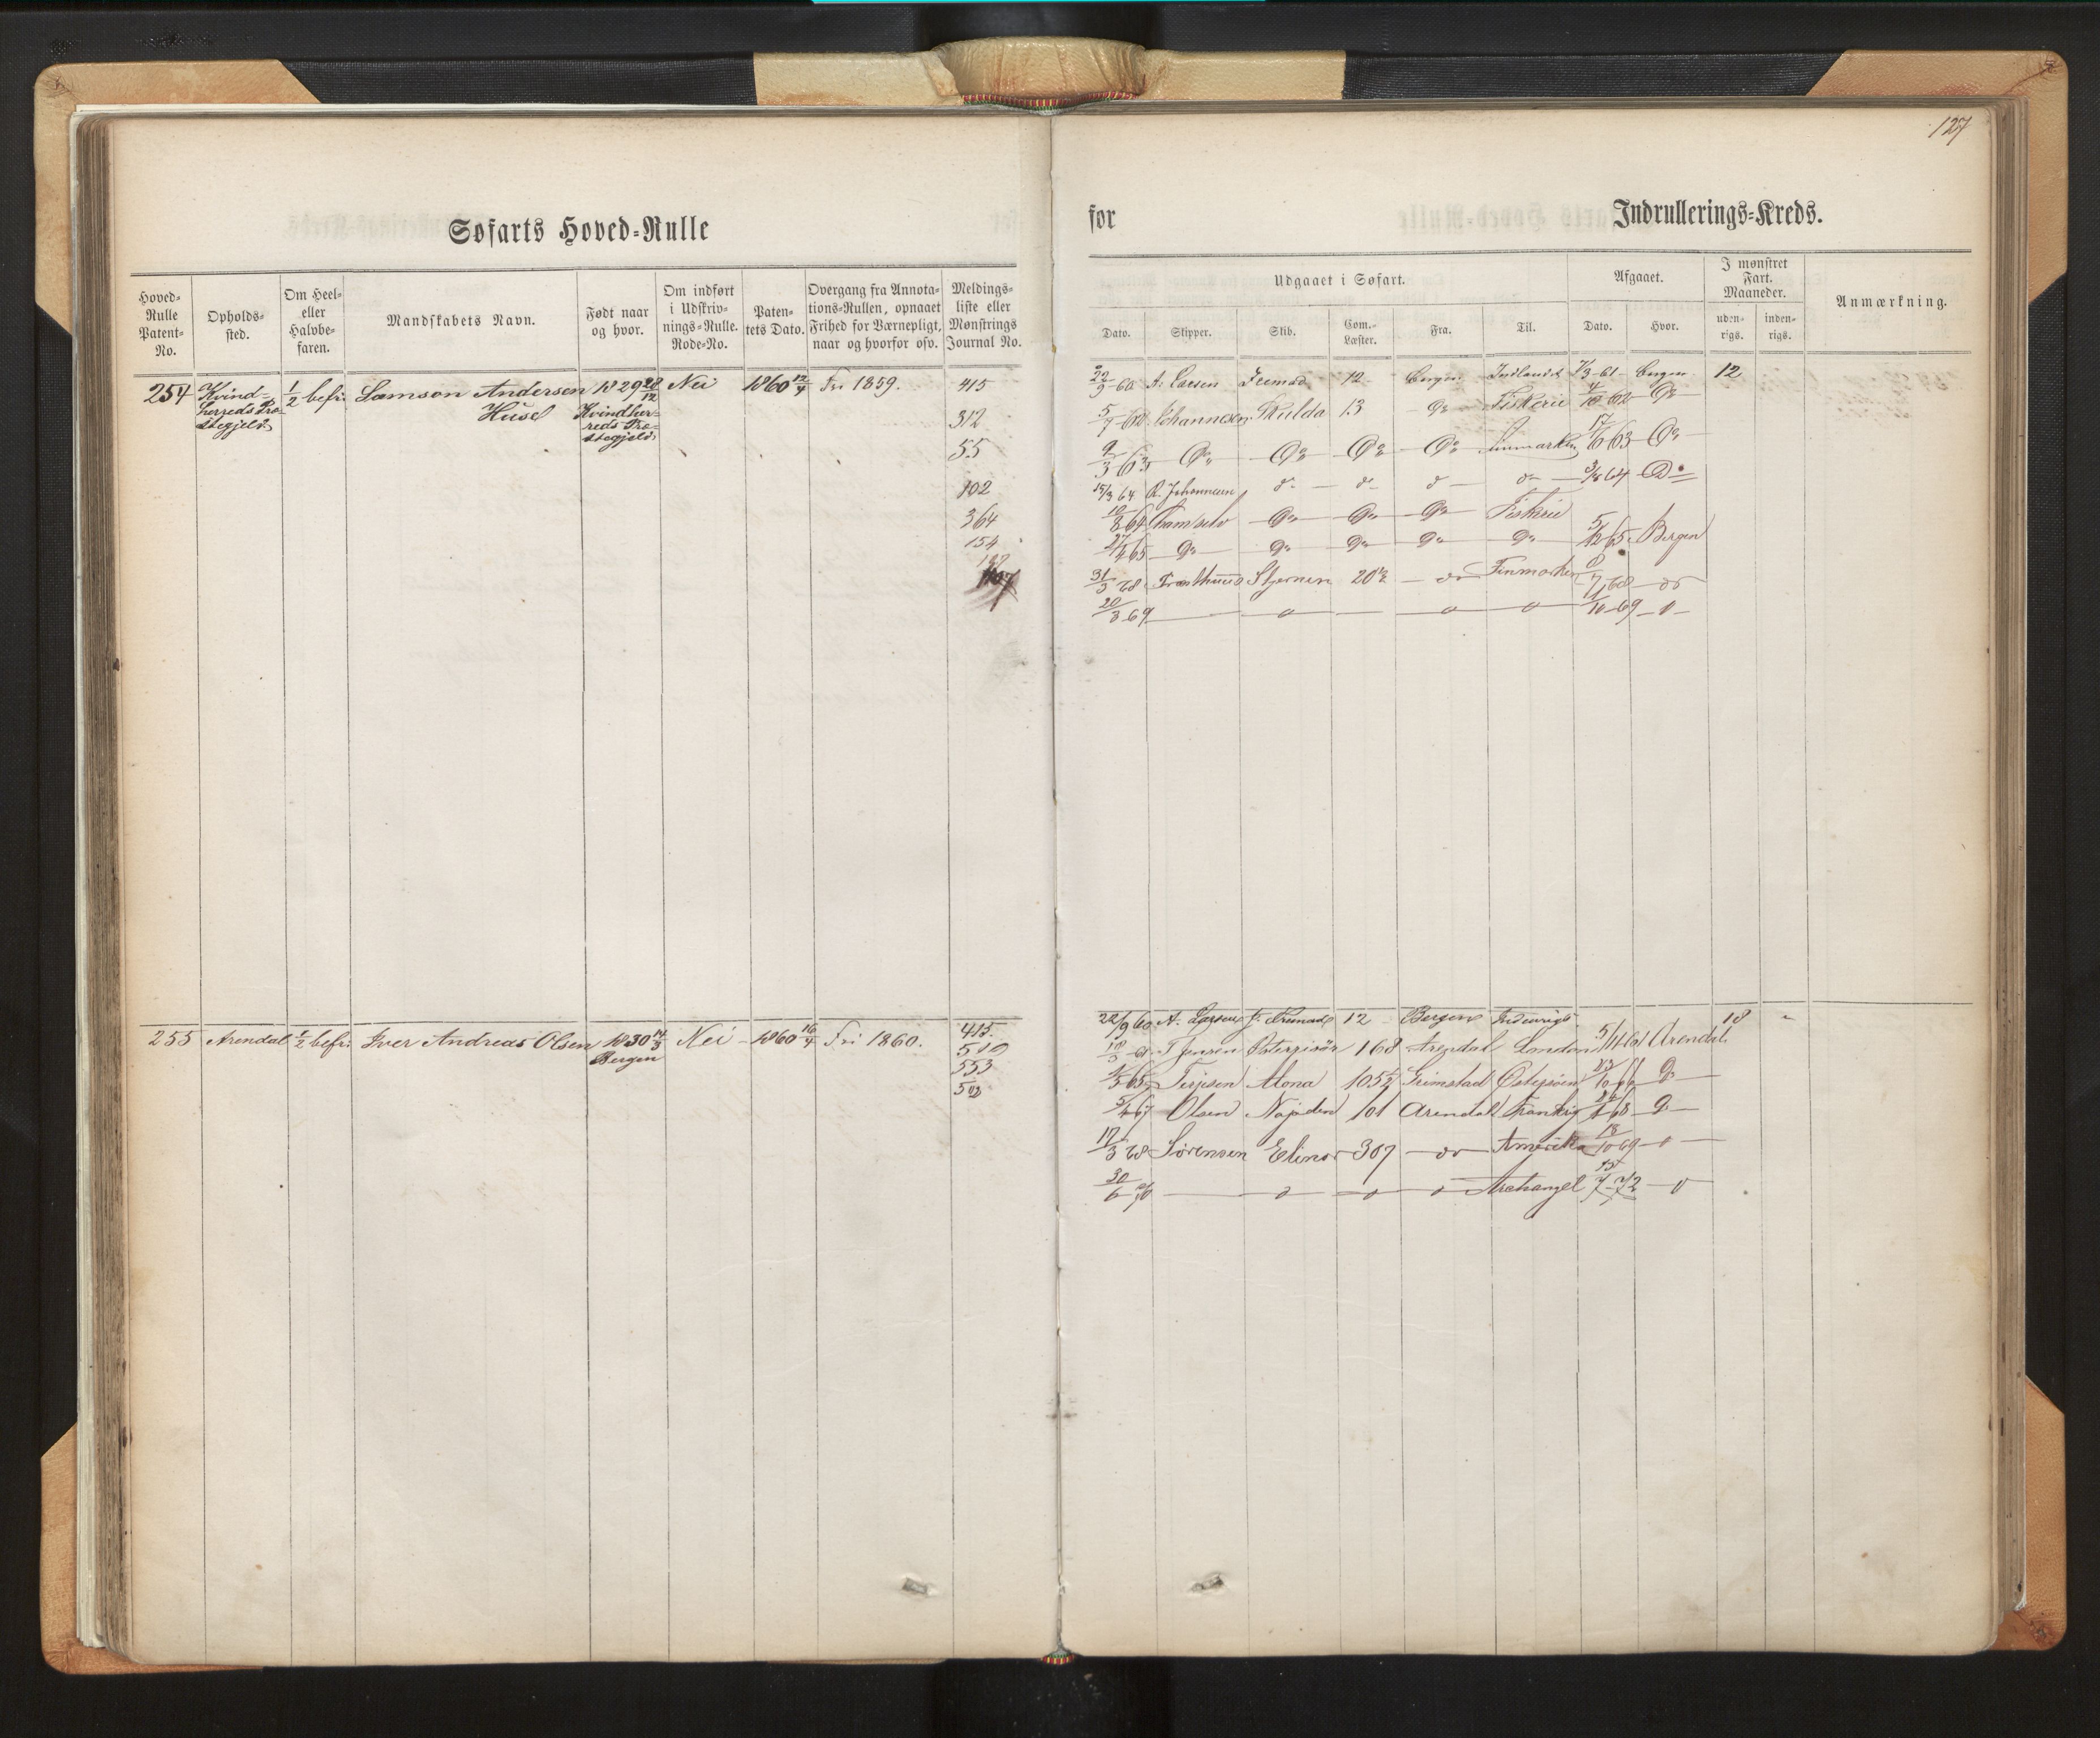 127
Søfarts Hoved=Rulle
for Indrullerings=Kreds.
Hoved=Rulle Patent=No. Opholds=sted. Om Heel= eller Halvbe=faren. Mandskabets Navn. Født naar og hvor. Om indført i Udskriv=nings=Rulle. Rode=No. Paten=tets Dato. Overgang fra Annota=tions=Rullen, opnaaet Frihed for Værnepligt, naar og hvorfor osv. Meldings=liste eller Mønstrings Journal No.
Udgaaet i Søfart. Afgaaet. I mønstret Fart. Maaneder. Anmærkning.
Dato. Skipper. Skib. Com.=Læster. Fra. Til. Dato. Hvor. uden=rigs. inden=rigs.
254 Kvind= 1/2 befr. Samson Andersen 1829 28/12 Nei 1860 12/4 Fri 1859. 415
herreds Præ= Husel Kvindher= 312
stegjeld. reds Præ= 55
stegjeld.
102
364
154
22/9 60 A. Larsen Fremad 12 Bergen Indlandet 1/3 61 Bergen 12
5/7 62 Johannesen Skulda 13 Do Fiskerie 4/10 62 Do
9/3 63 Do Do Do Do Finmarken 17/6 63 Do
15/3 64 R. Johannesen do do do do 3/8 64 Do
10/8 64 Do Do Do Fiskerie
27/4 65 Do Do Do Do Do 5/12 65 Bergen
31/3 68 Stjernen 20 1/2 do Finmarken 8/7 68 do
20/3 69 1/10 69
255 Arendal 1/2 befr. Iver Andreas Olsen 1830 14/3 Nei 1860 16/4 Fri 1860. 415
Bergen 510
553
22/9 60 A. Larsen Fremad 12 Bergen Indenrigs 18
18/3 61 T Jensen Østerrisör 168 Arendal London 5/11 61 Arendal
1/5 65 Terjesen Alona 105 1/2 Grimstad Østersöen 23/10 66 Do
5/4 67 Olsen Najaden 101 Arendal Frankrig 68 Do
17/3 68 Sörensen Elinor 307 do Amerika 18/10 69
30/6 70 Archangel 15/7 72